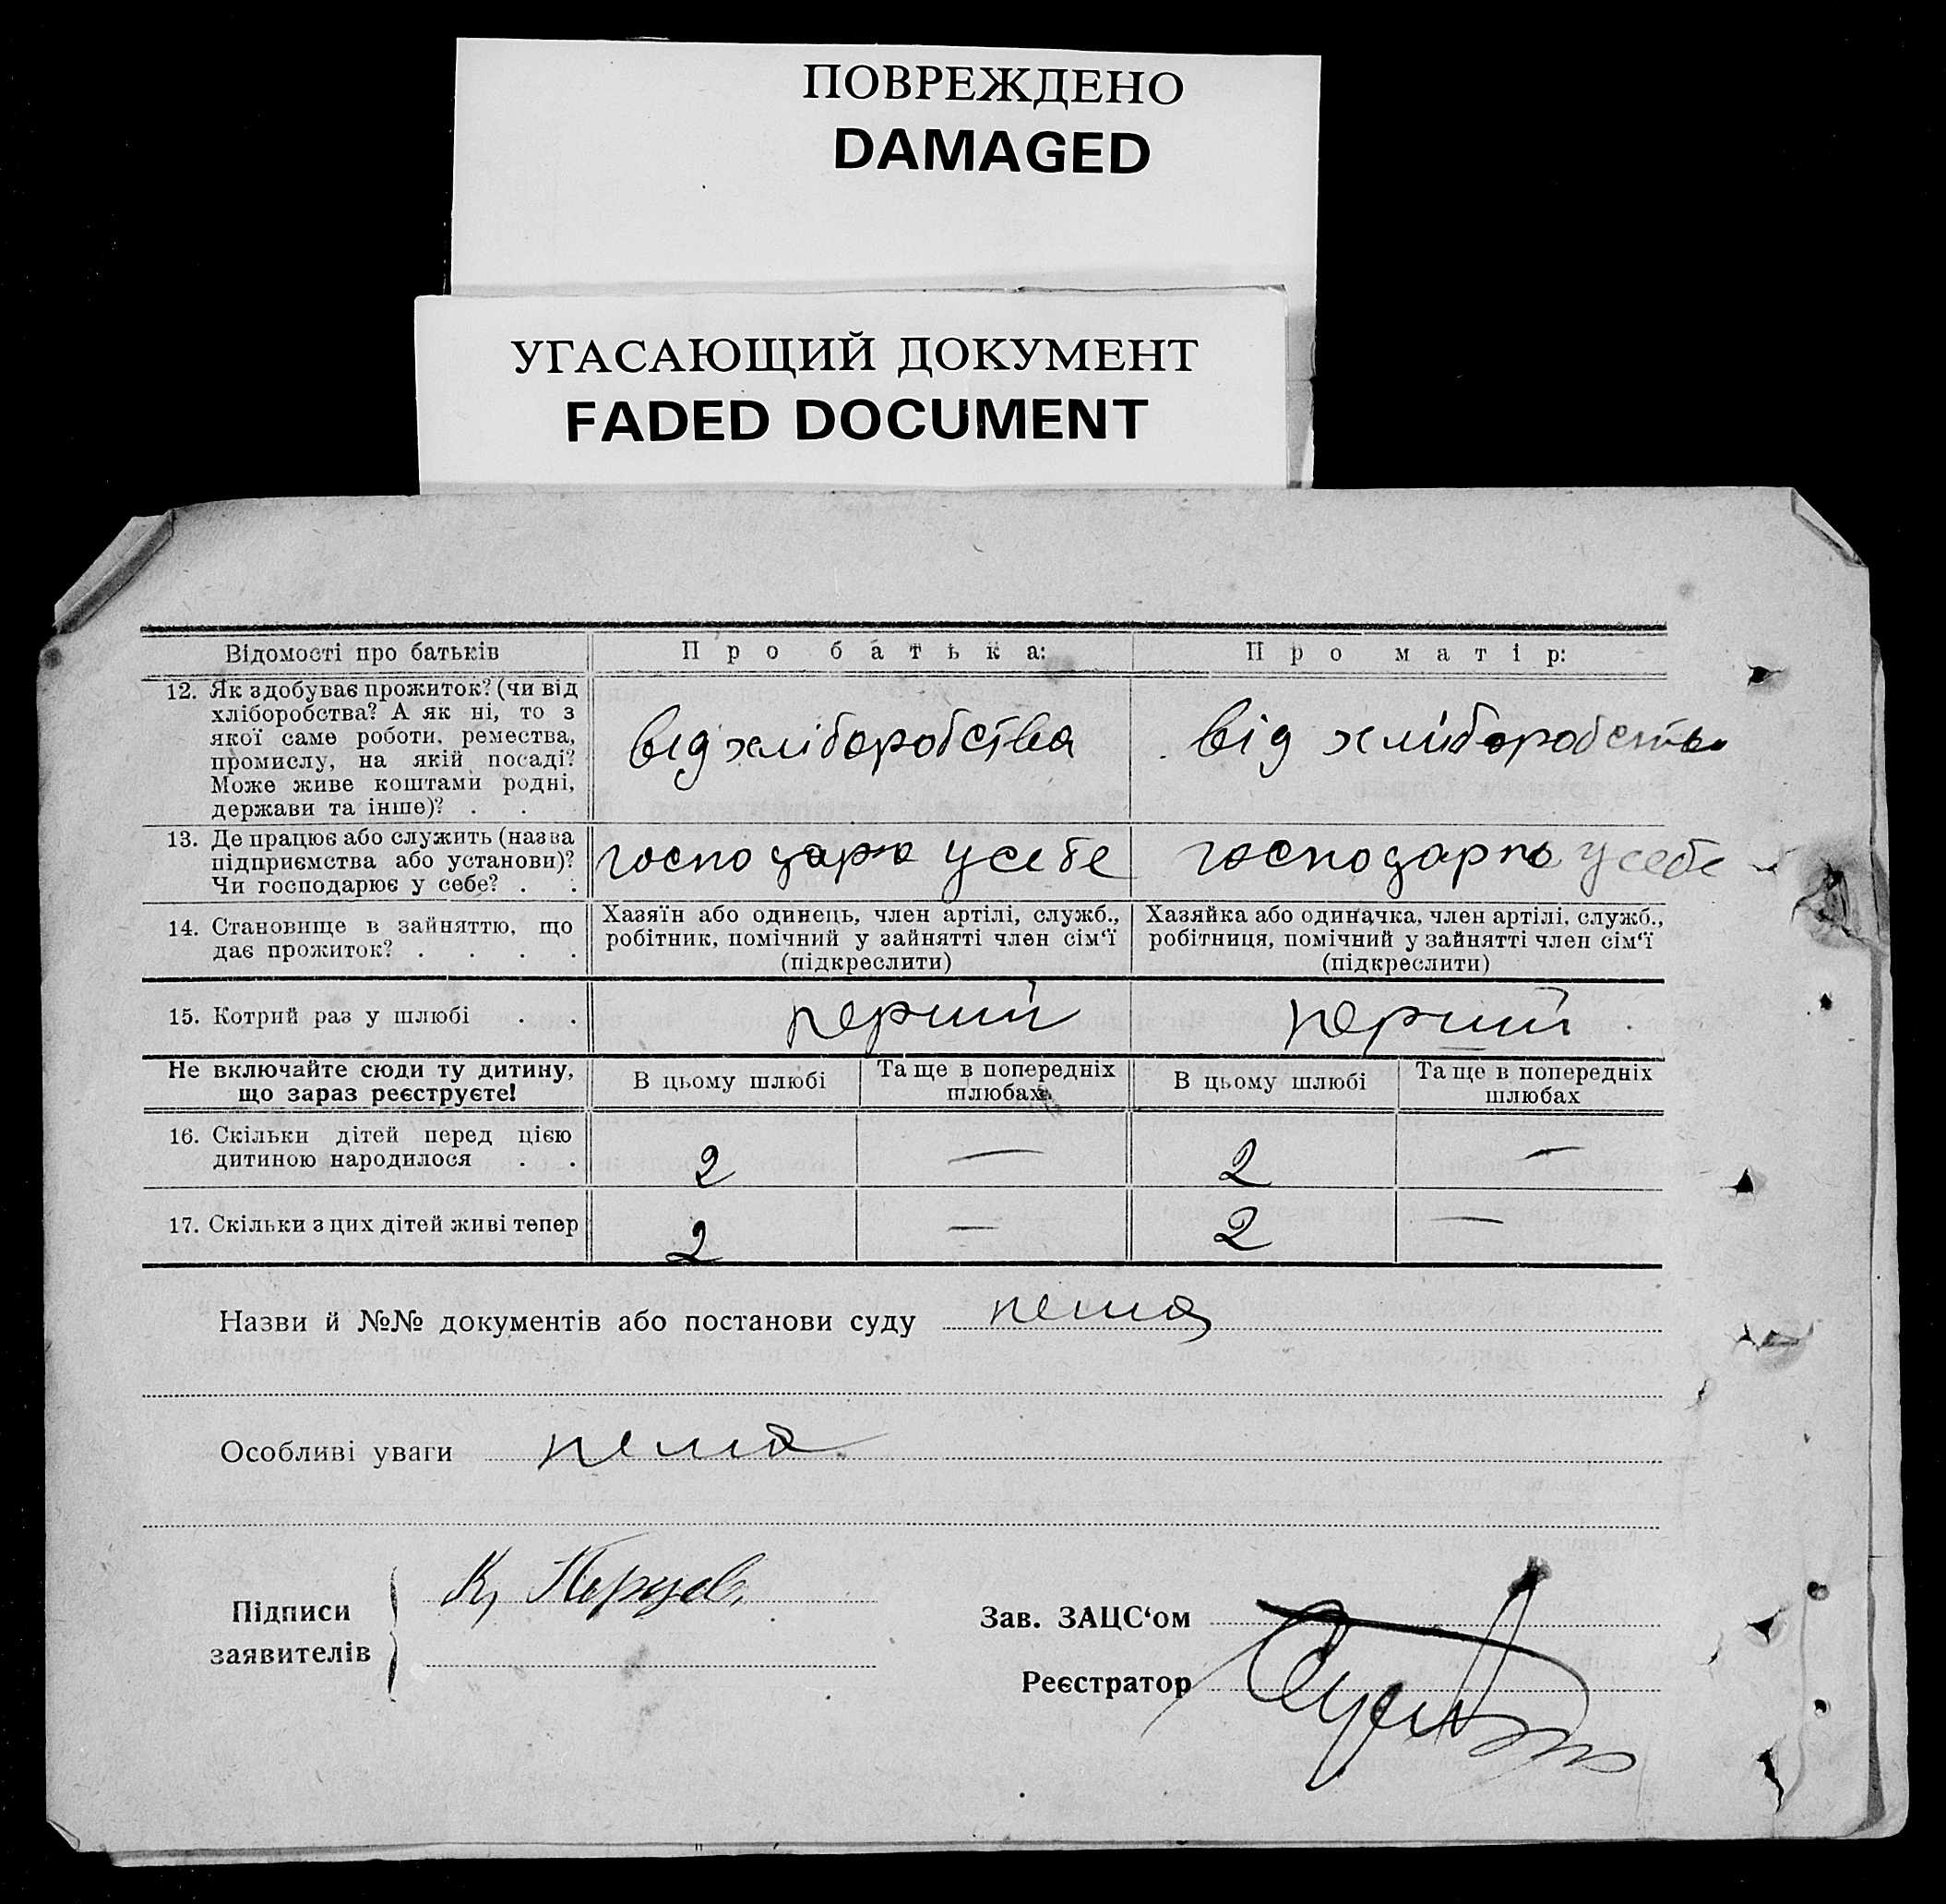 ПОВРЕЖДЕНО
DAMAGED
УГАСАЮЩИЙ ДОКУМЕНТ
FADED DOCUMENT
Відомості про батьків
Про батька:
Про матір:
12. Як здобуває прожиток? (чи від
хліборобства? А як ні, то з
якої саме роботи, ремества,
промислу, на якій посаді?
Може живе коштами родні,
держави та інше)? . .
від хліборобства
від хліборобства
13. Де працює або служить (назва
підприємства або установи)?
Чи господарює у себе? . .
господарю у себе
господарю у себе
14. Становище в зайняттю, що
дає прожиток? . . . .
Хазяїн або одинець, член артілі, служб.,
робітник, помічний у зайнятті член сім‘ї
(підкреслити)
Хазяйка або одиначка, член артілі, служб.,
робітниця, помічний у зайнятті член сім‘ї
(підкреслити)
15. Котрий раз у шлюбі . .
перший
перший
Не включайте сюди ту дитину,
що зараз реєструєте!
В цьому шлюбі
Та ще в попередніх
шлюбах
В цьому шлюбі
Та ще в попередніх
шлюбах
16. Скільки дітей перед цією
дитиною народилося . .
2 — 2 —
17. Скільки з цих дітей живі тепер
2 — 2 —
Назви й №№ документів або постанови суду нема
Особливі уваги нема
Підписи
заявителів
К,
Зав. ЗАЦС‘ом
Реєстратор